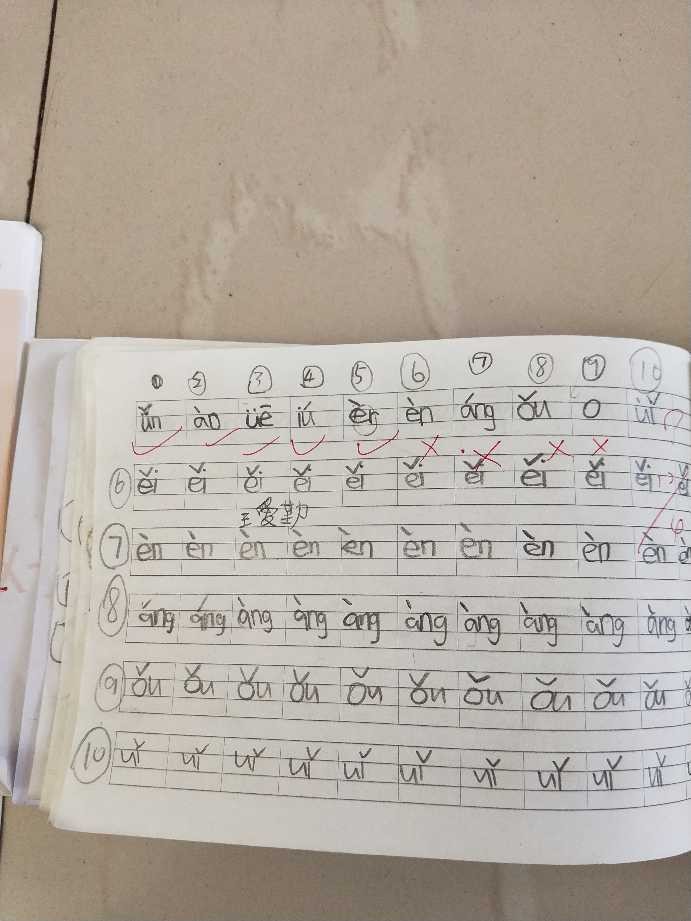 ① ② ③ ④ ⑤ ⑥ ⑦ ⑧ ⑨ ⑩
ǚn ào üē iú èr èn áng ǒu o uǐ
⑥ ěi ěi ěi ěi ěi ěi ěi ěi ěi ěi
王爱勤
⑦ èn èn èn èn èn èn èn èn èn èn
⑧ áng áng àng àng àng àng àng àng àng àng
⑨ ǒu ǒu ǒu ǒu ǒu ǒu ǒu ǒu ǒu ǒu
⑩ uǐ uǐ uǐ uǐ uǐ uǐ uǐ uǐ uǐ uǐ